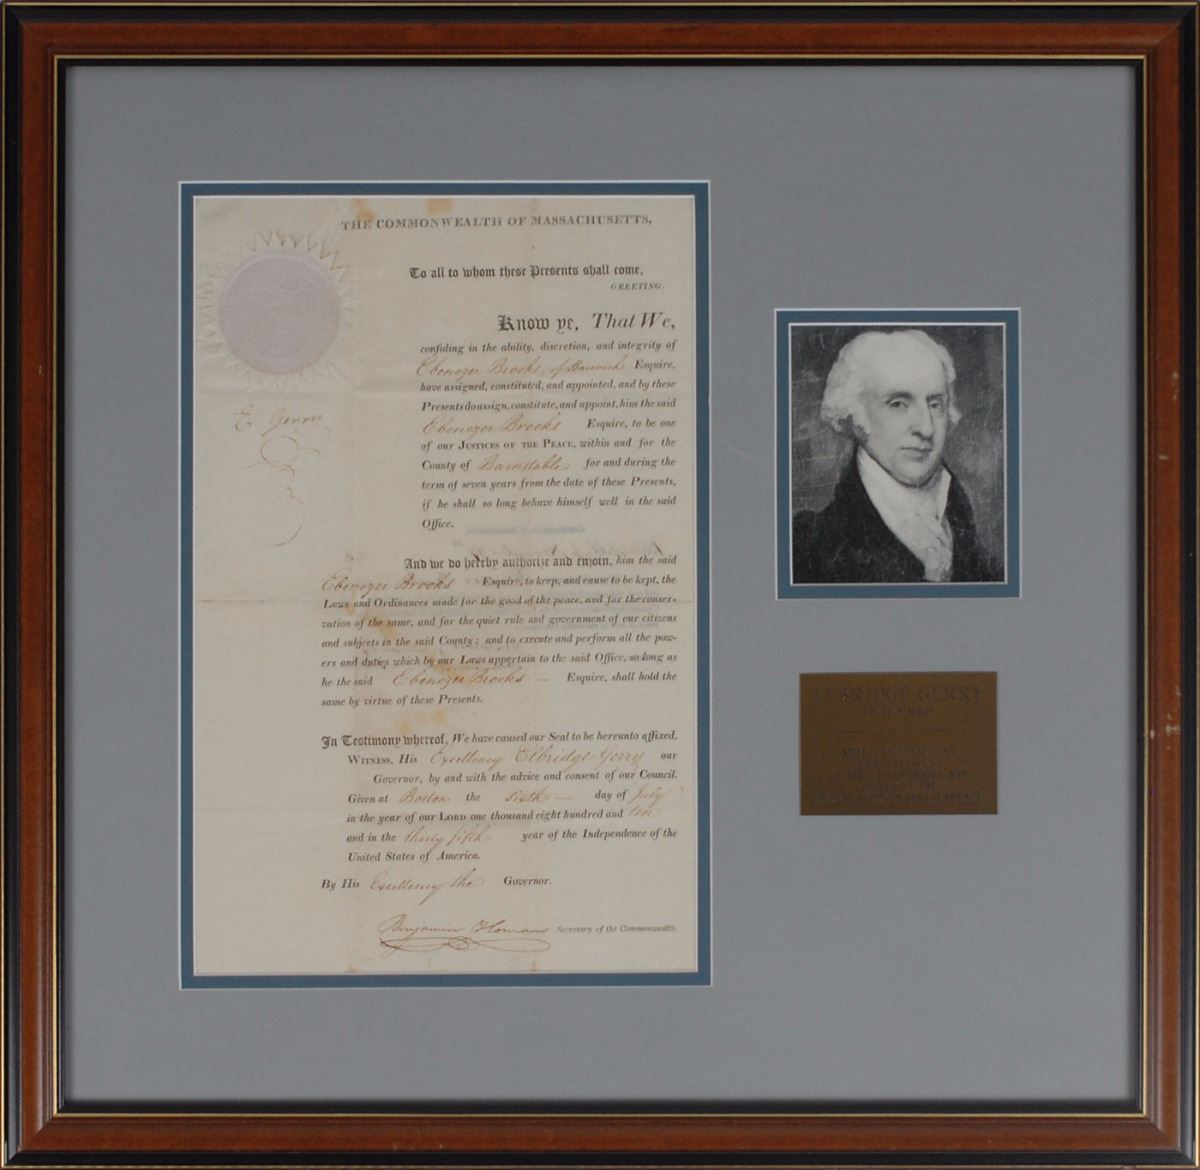 THE COMMONWEALTH OF MASSACHUSETTS.
To all to whom these Presents shall come,
GREETING:
Know ye, That We,
confiding in the ability, discretion, and integrity of
Ebenezer Brooks of Harwich Esquire,
have assigned, constituted, and appointed, and by these
Presents do assign, constitute, and appoint, him the said
Ebenezer Brooks Esquire, to be one
of our JUSTICES OF THE PEACE, within and for the
County of Barnstable for and during the
term of seven years from the date of these Presents,
if he shall so long behave himself well in the said
Office.
E Gerry
And we do hereby authorize and enjoin, him the said
Ebenezer Brooks Esquire, to keep, and cause to be kept, the
Laws and Ordinances made for the good of the peace, and for the conser-
vation of the same, and for the quiet rule and government of our citizens
and subjects in the said County; and to execute and perform all the pow-
ers and duties which by our Laws appertain to the said Office, so long as
he the said Ebenezer Brooks — Esquire, shall hold the
same by virtue of these Presents.
In Testimony whereof, We have caused our Seal to be hereunto affixed,
WITNESS, His Excellency Elbridge Gerry our
Governor, by and with the advice and consent of our Council.
Given at Boston the sixth — day of July
in the year of our LORD one thousand eight hundred and ten
and in the thirty fifth year of the Independence of the
United States of America.
By His Excellency the Governor.
Benjamin Homans Secretary of the Commonwealth.
ELBRIDGE GERRY
AMERICAN STATESMAN
VICE PRESIDENT
OF THE UNITED STATES AND
SIGNER OF THE
DECLARATION OF INDEPENDENCE